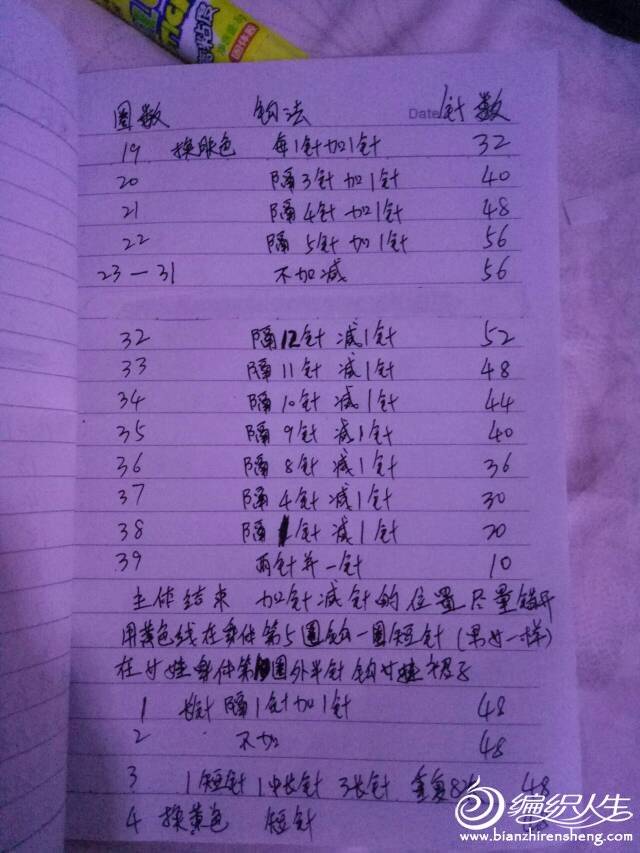 圈数 钩法 Date 针数
19 换肤色 每1针加1针 32
20 隔3针加1针 40
21 隔4针加1针 48
22 隔5针加1针 56
23—31 不加减 56
32 隔12针减1针 52
33 隔11针减1针 48
34 隔10针减1针 44
35 隔9针减1针 40
36 隔8针减1针 36
37 隔4针减1针 30
38 隔1针减1针 20
39 两针并一针 10
主体结束 加针减针的位置尽量错开
用黄色线在身体第5圈钩一圈短针(男女一样)
在女娃身体第圈外半针钩女娃裙子
1 长针 隔1针加1针 48
2 不加 48
3 1短针1中长针3长针 重复8次 48
4 换黄色 短针
编织人生
www.bianzhirensheng.com